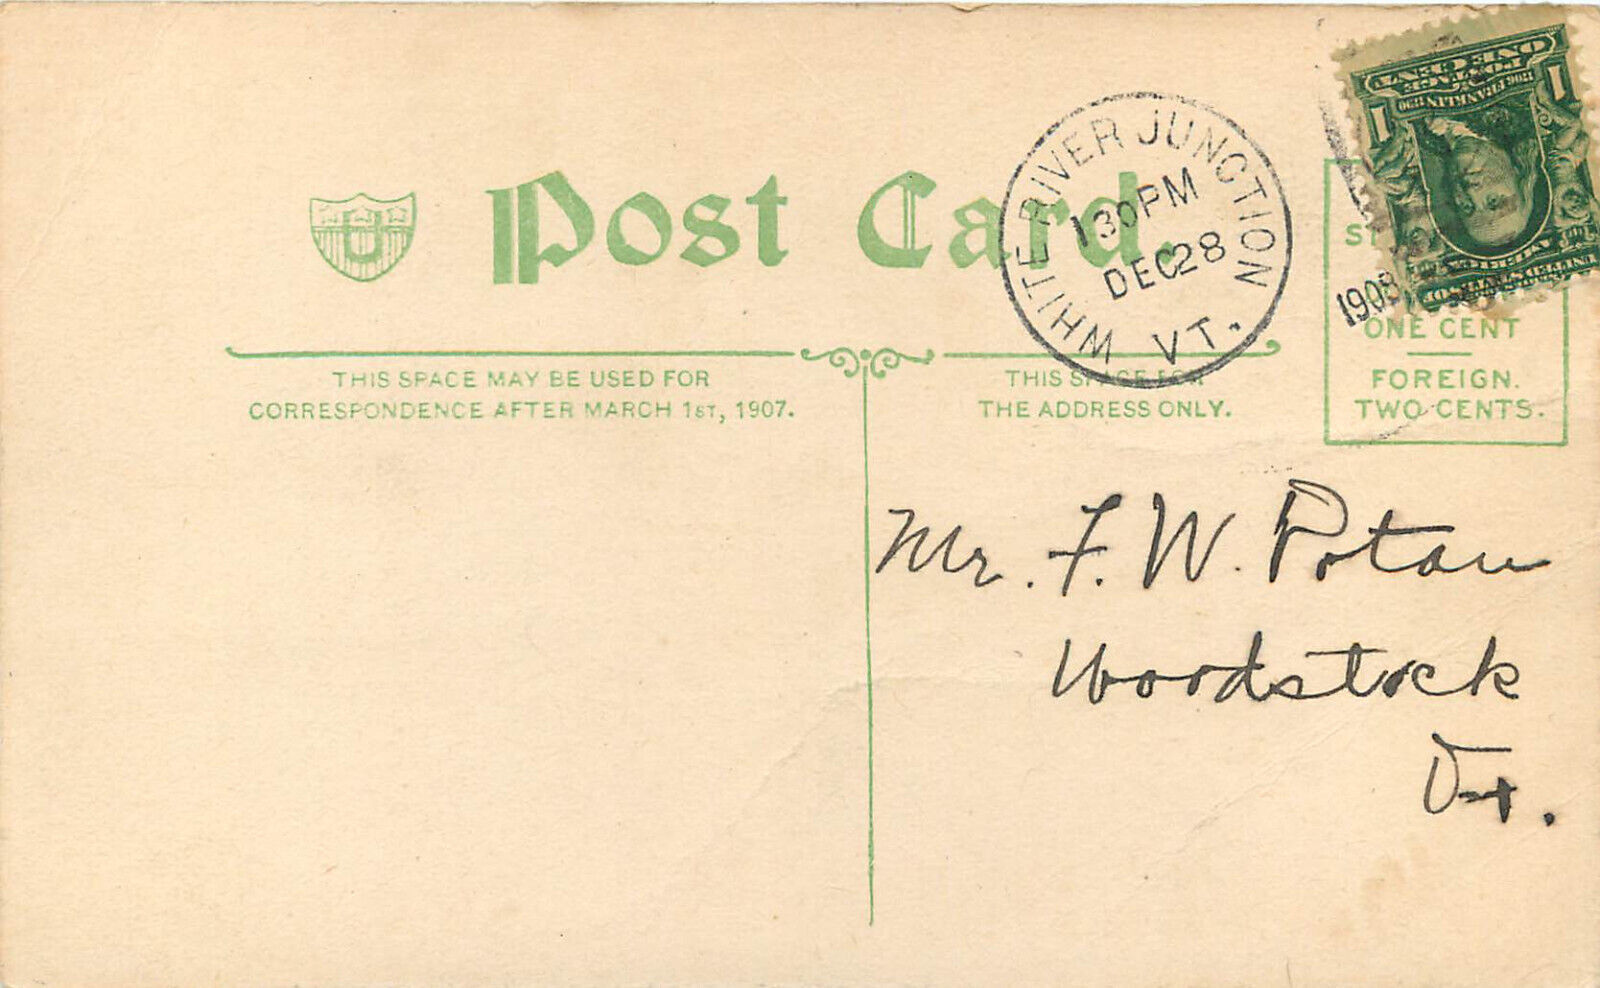 Post Card.
WHITE RIVER JUNCTION
130PM
DEC28
VT.
1908
1 POSTAGE ONE CENT 1
1706 FRANKLIN 1790
ONE CENT
FOREIGN.
TWO CENTS.
THIS SPACE MAY BE USED FOR
CORRESPONDENCE AFTER MARCH 1ST, 1907.
THIS SPACE FOR
THE ADDRESS ONLY.
Mr. F. W.
Woodstock
Vt.